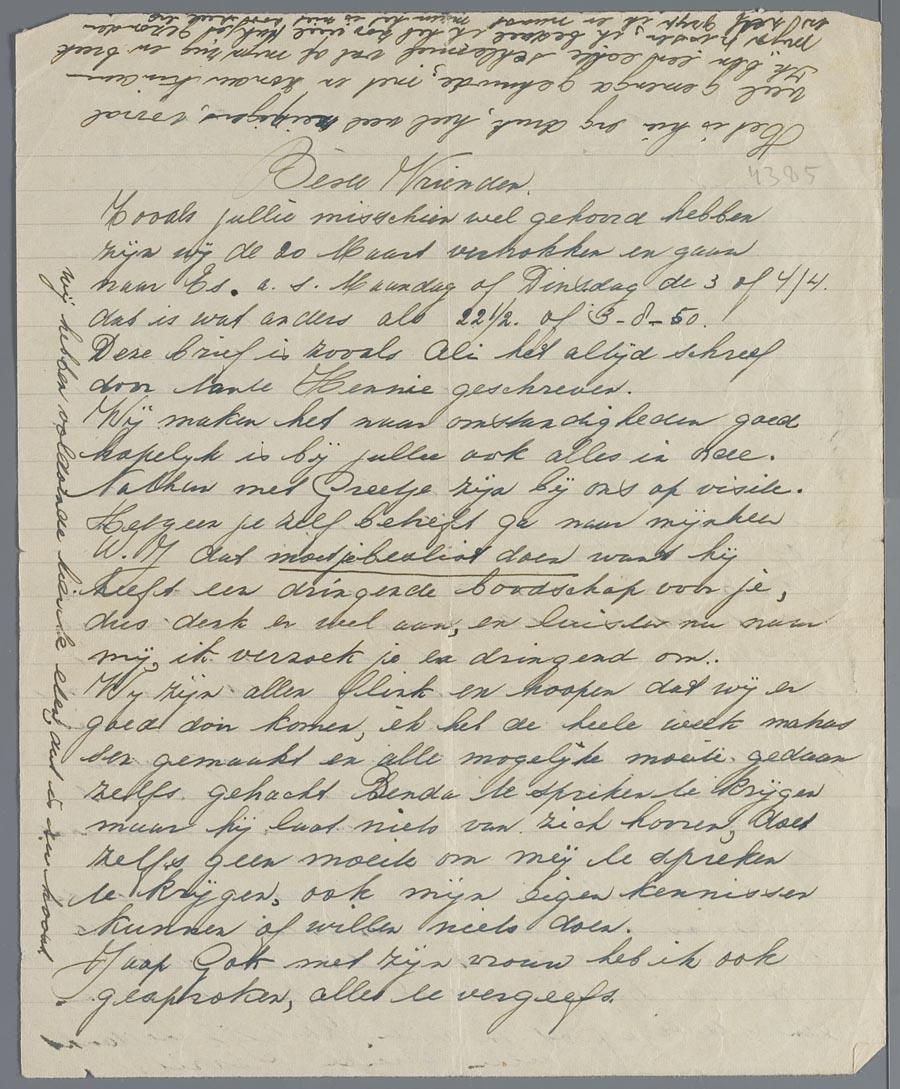 Beste Vrienden.
4385
Zooals jullie misschien wel gehoord hebben
zijn wij de 20 Maart vertrokken en gaan
naar Es. a. s. Maandag of Dinsdag de 3 of 4/4.
dat is wat anders als 22½. of 3-8-50.
Deze brief is zooals Ali het altijd schreef
door tante Hennie geschreven.
Wij maken het naar omstandigheden goed
hopelijk is bij jullie ook alles in orde.
Nathan met Greetje zijn bij ons op visite.
Hetgeen je zelf betreft ga naar mijnheer
dat moet je beslist doen want hij
heeft een dringende boodschap voor je,
dus denk er wel aan, en luister nu naar
mij, ik verzoek je er dringend om.
Wij zijn allen flink en hoopen dat wij er
goed door komen, ik heb de heele week
gemaakt en alle mogelijke moeite gedaan
zelfs getracht Benda te spreken te krijgen
maar hij laat niets van zich hooren, doet
zelfs geen moeite om mij te spreken
te krijgen, ook mijn eigen kennissen
kunnen of willen niets doen.
Jaap met zijn vrouw heb ik ook
gesproken, alles te vergeefs.
wij hebben voldoende
Het is hier erg druk, heel veel vooral
veel
Ik ben een echte